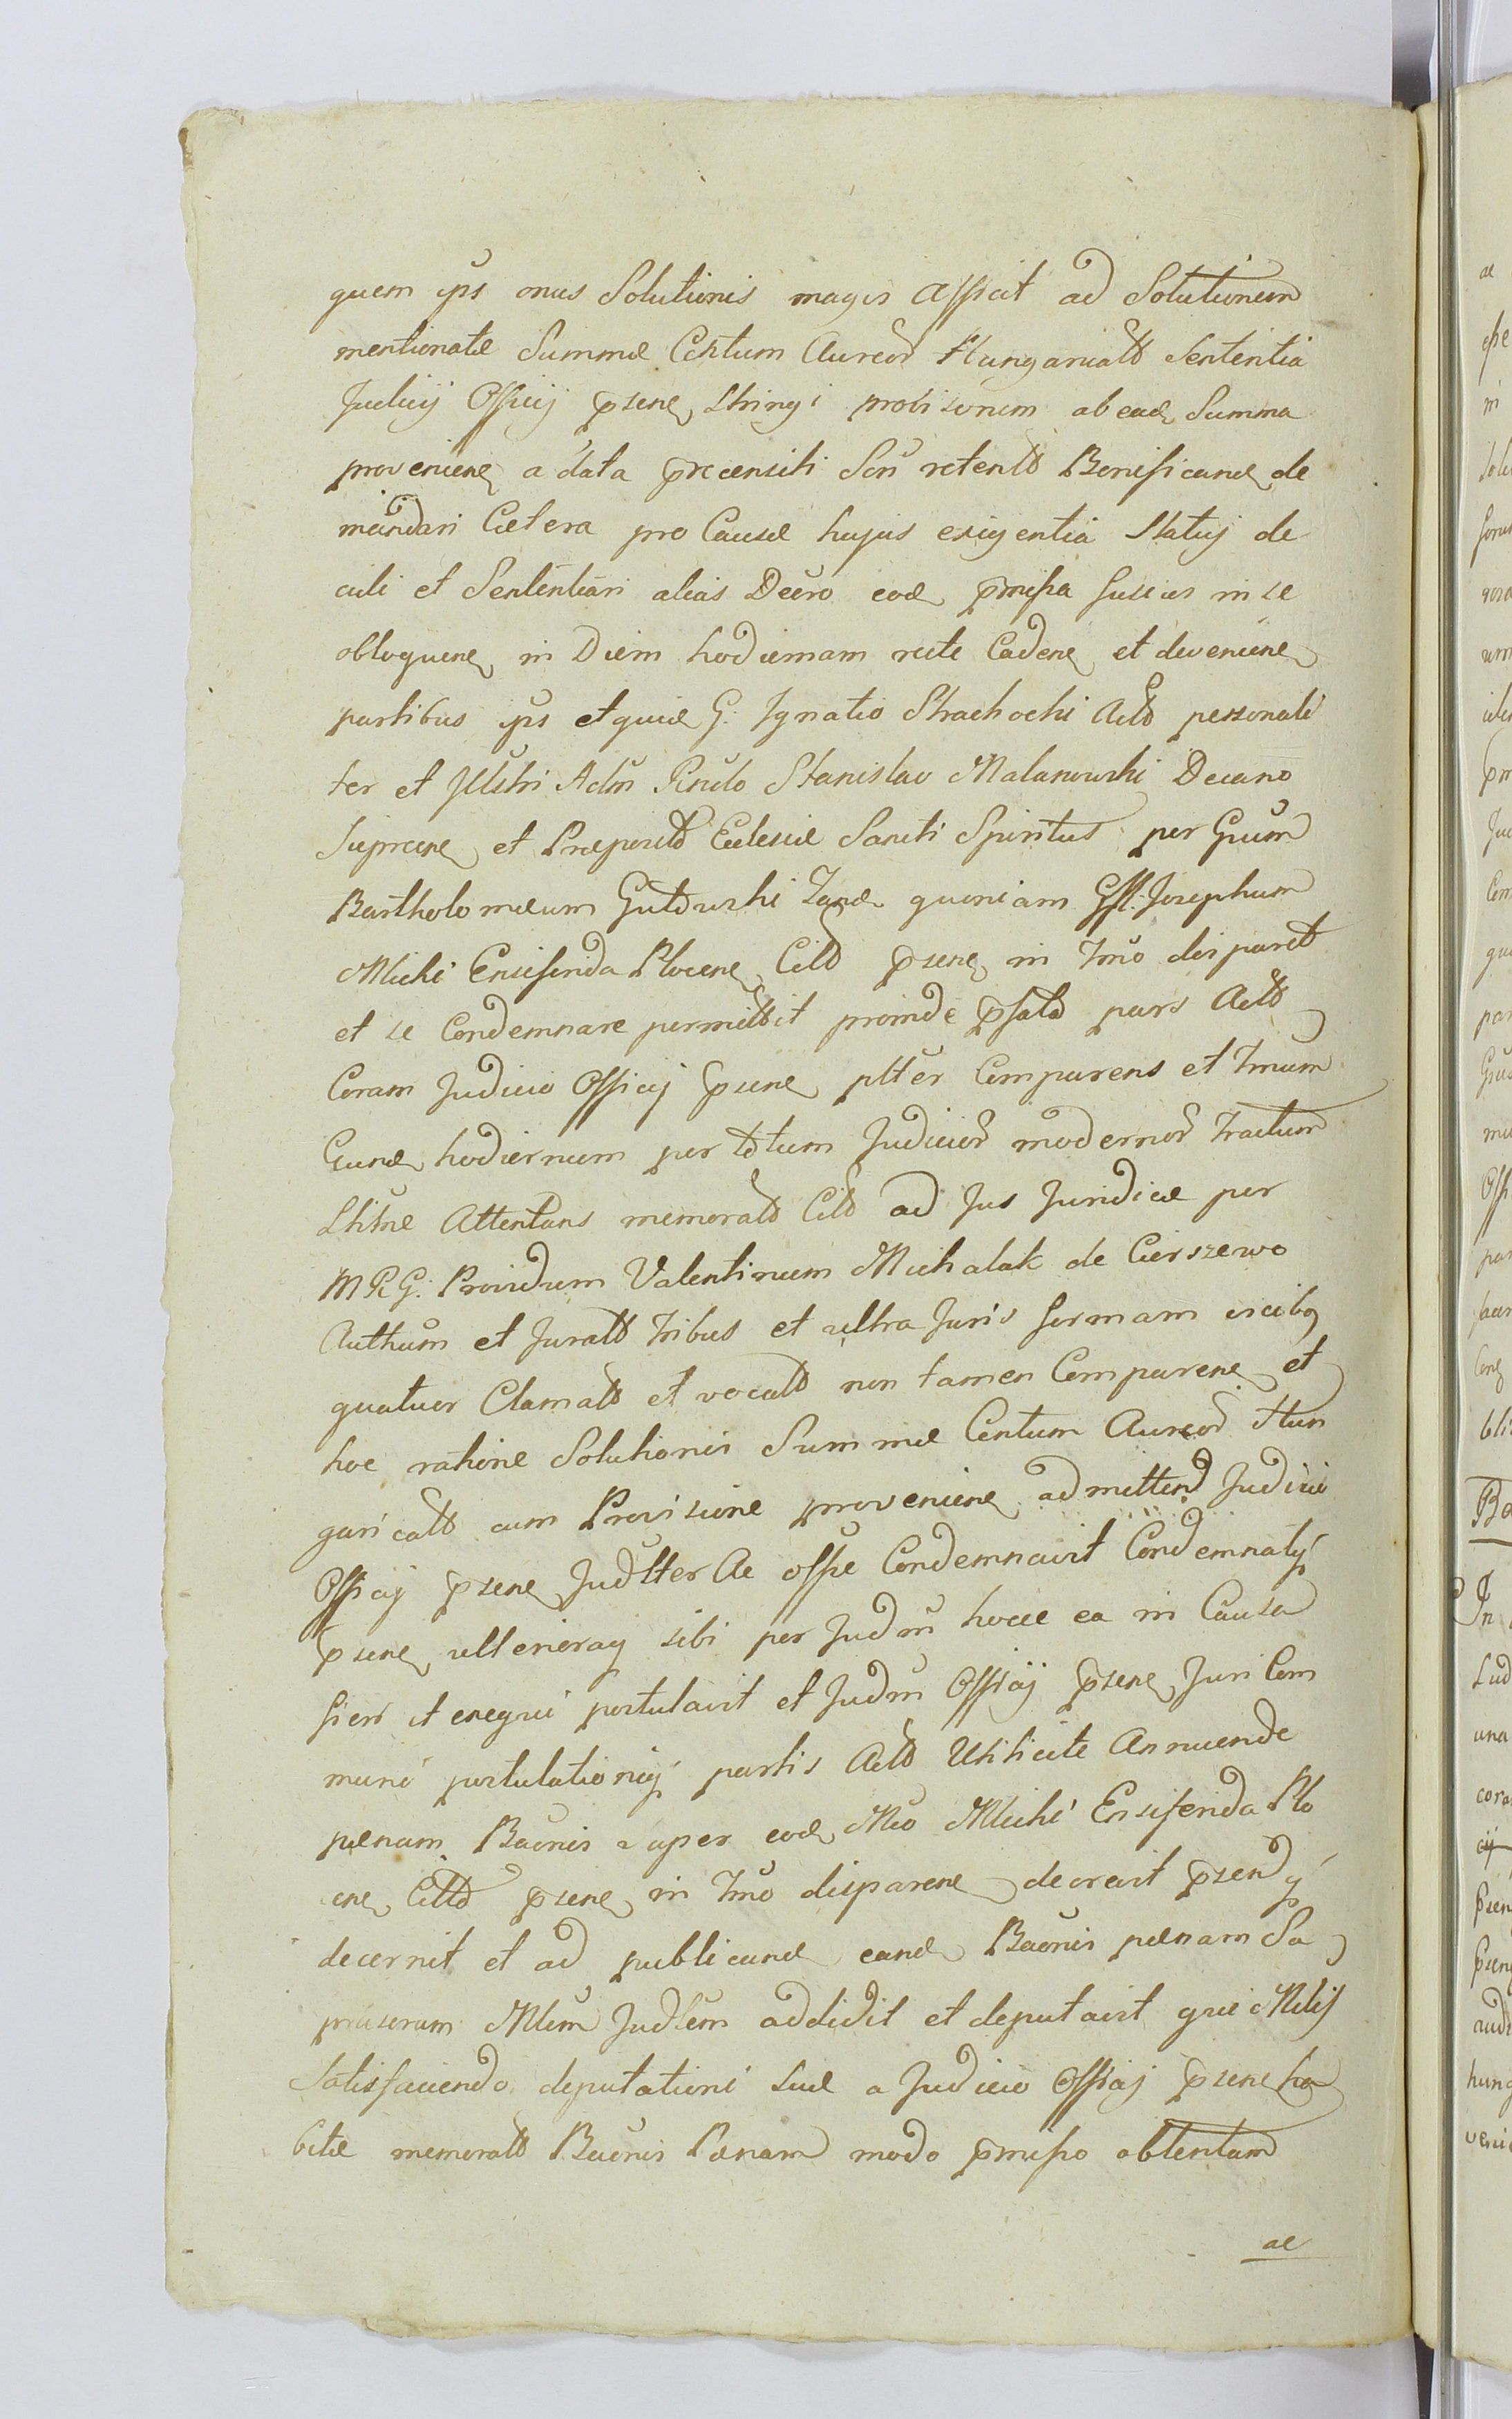 quem ips onus Solutionis magis afficit ad Solutionem
mentionatæ Summæ Centum Aureor Hungaricalt Sententia
Judicij Officij psene Sthingi provisionem ab ead Summa
proveniene a data præcensiti Scri retent Bonificand de
mandari Cætera pro Causæ hujus exigentia Statuj de
cidi et Sententiari alias Decro eod pmissa fusius in se
obloquene in Diem hodiernam recte Cadene et deveniene
partibus ips et quidem G. Ignatio Strachocki Act personali
ter et Jllstri Adm Rndo Stanislao Malanowski Decano
Sieprcene et Præposito Ecclesiæ Sancti Spiritus per Gsum
Bartholomæum Gutowski Tand quoniam Gsf. Josephum
Mlicki Ensiferida Plocene Cit psene in Tmo disparet
et se Condemnare permittit proinde psata pars Act
Coram Judicio Officij psene pltter Comparens et Tmum
Eund hodiernum per totum Judicior modernor Tractum
Lhitne Attentans memorat Cit ad Jus Juridice per
MRG. Providum Valentinum Michalak de Cierszewo
Authum et Jurat tribus et ultra Juris formam vicibq
quatuor Clamat et vocat non tamen Comparene et
hoc ratione Solutionis Summæ Centum Aureor Hun
garicalt cum Provisione proveniene admittend Judicio
Officij psene Judltter Ac offse Condemnavit Condemnatq
psene ulterioraq sibi per Judm hocce ea in Causa
fieri et exequi postulavit et Judm Officij psene Juri Com
muni postulationiq partis Act Utilicite Annuendo
pænam Baonis super eod Mco Mlicki Ensiferida Plo
cene Citto psene in Tmo disparene decrevit psend q
decernit et ad publicand eand Baonis pænam Sa
præserum Mlem Judlem addidit et deputavit qui Milis
satisfaciendo deputationi suæ a Judicio Officij psene ha
bitæ memorat Baonis Pænam modo pmisso obtentam
ac